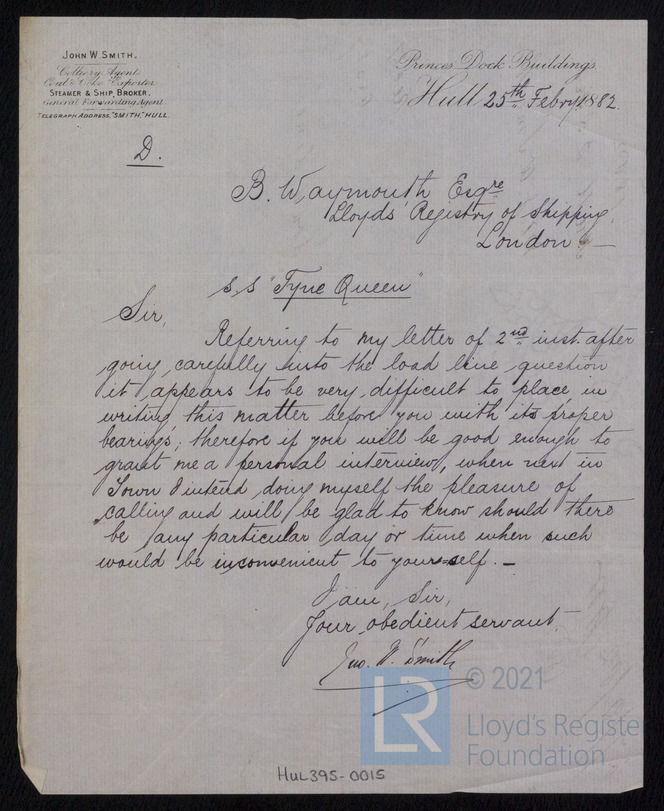 JOHN W. SMITH.
Colliery Agent.
Coal & Coke Exporter.
STEAMER & SHIP BROKER.
General Forwarding Agent.
TELEGRAPH ADDRESS, "SMITH," HULL.
Princes Dock Buildings.
Hull 25th Febry 1882.
D.
B. Waymouth Esqre
Lloyds' Registry of Shipping.
London. —
S,S "Tyne Queen"
Sir,
Referring to my letter of 2nd inst. after
going carefully into the load line question
it appears to be very difficult to place in
writing this matter before you with its proper
bearings; therefore if you will be good enough to
grant me a personal interview, when next in
Town I intend doing myself the pleasure of
calling and will be glad to know should there
be any particular day or time when such
would be inconvenient to yourself. —
I am, Sir,
Your obedient servant.
Jno. W. Smith
© 2021
LR
Lloyd's Register
Foundation
HUL395-0015